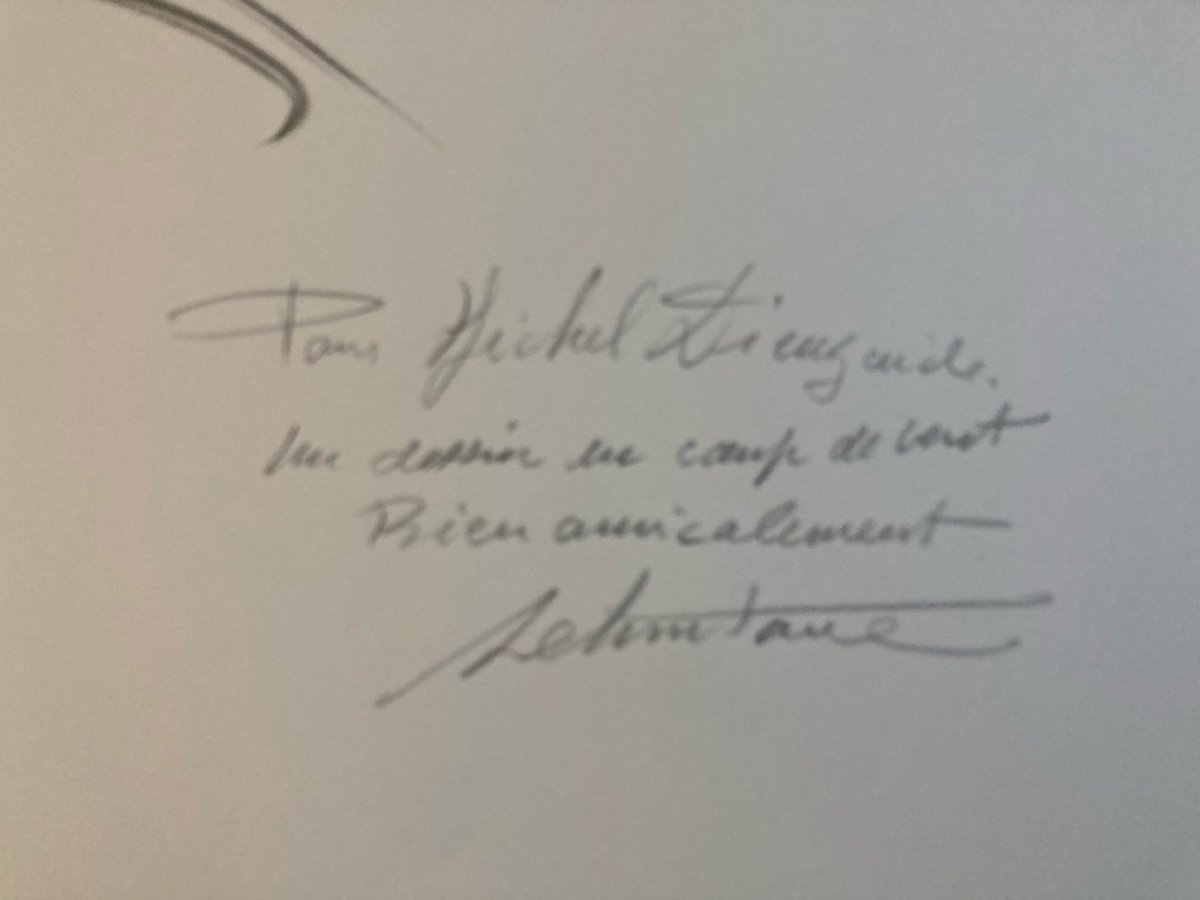 Pour Michel
Un dessin en coup de vent
Bien amicalement